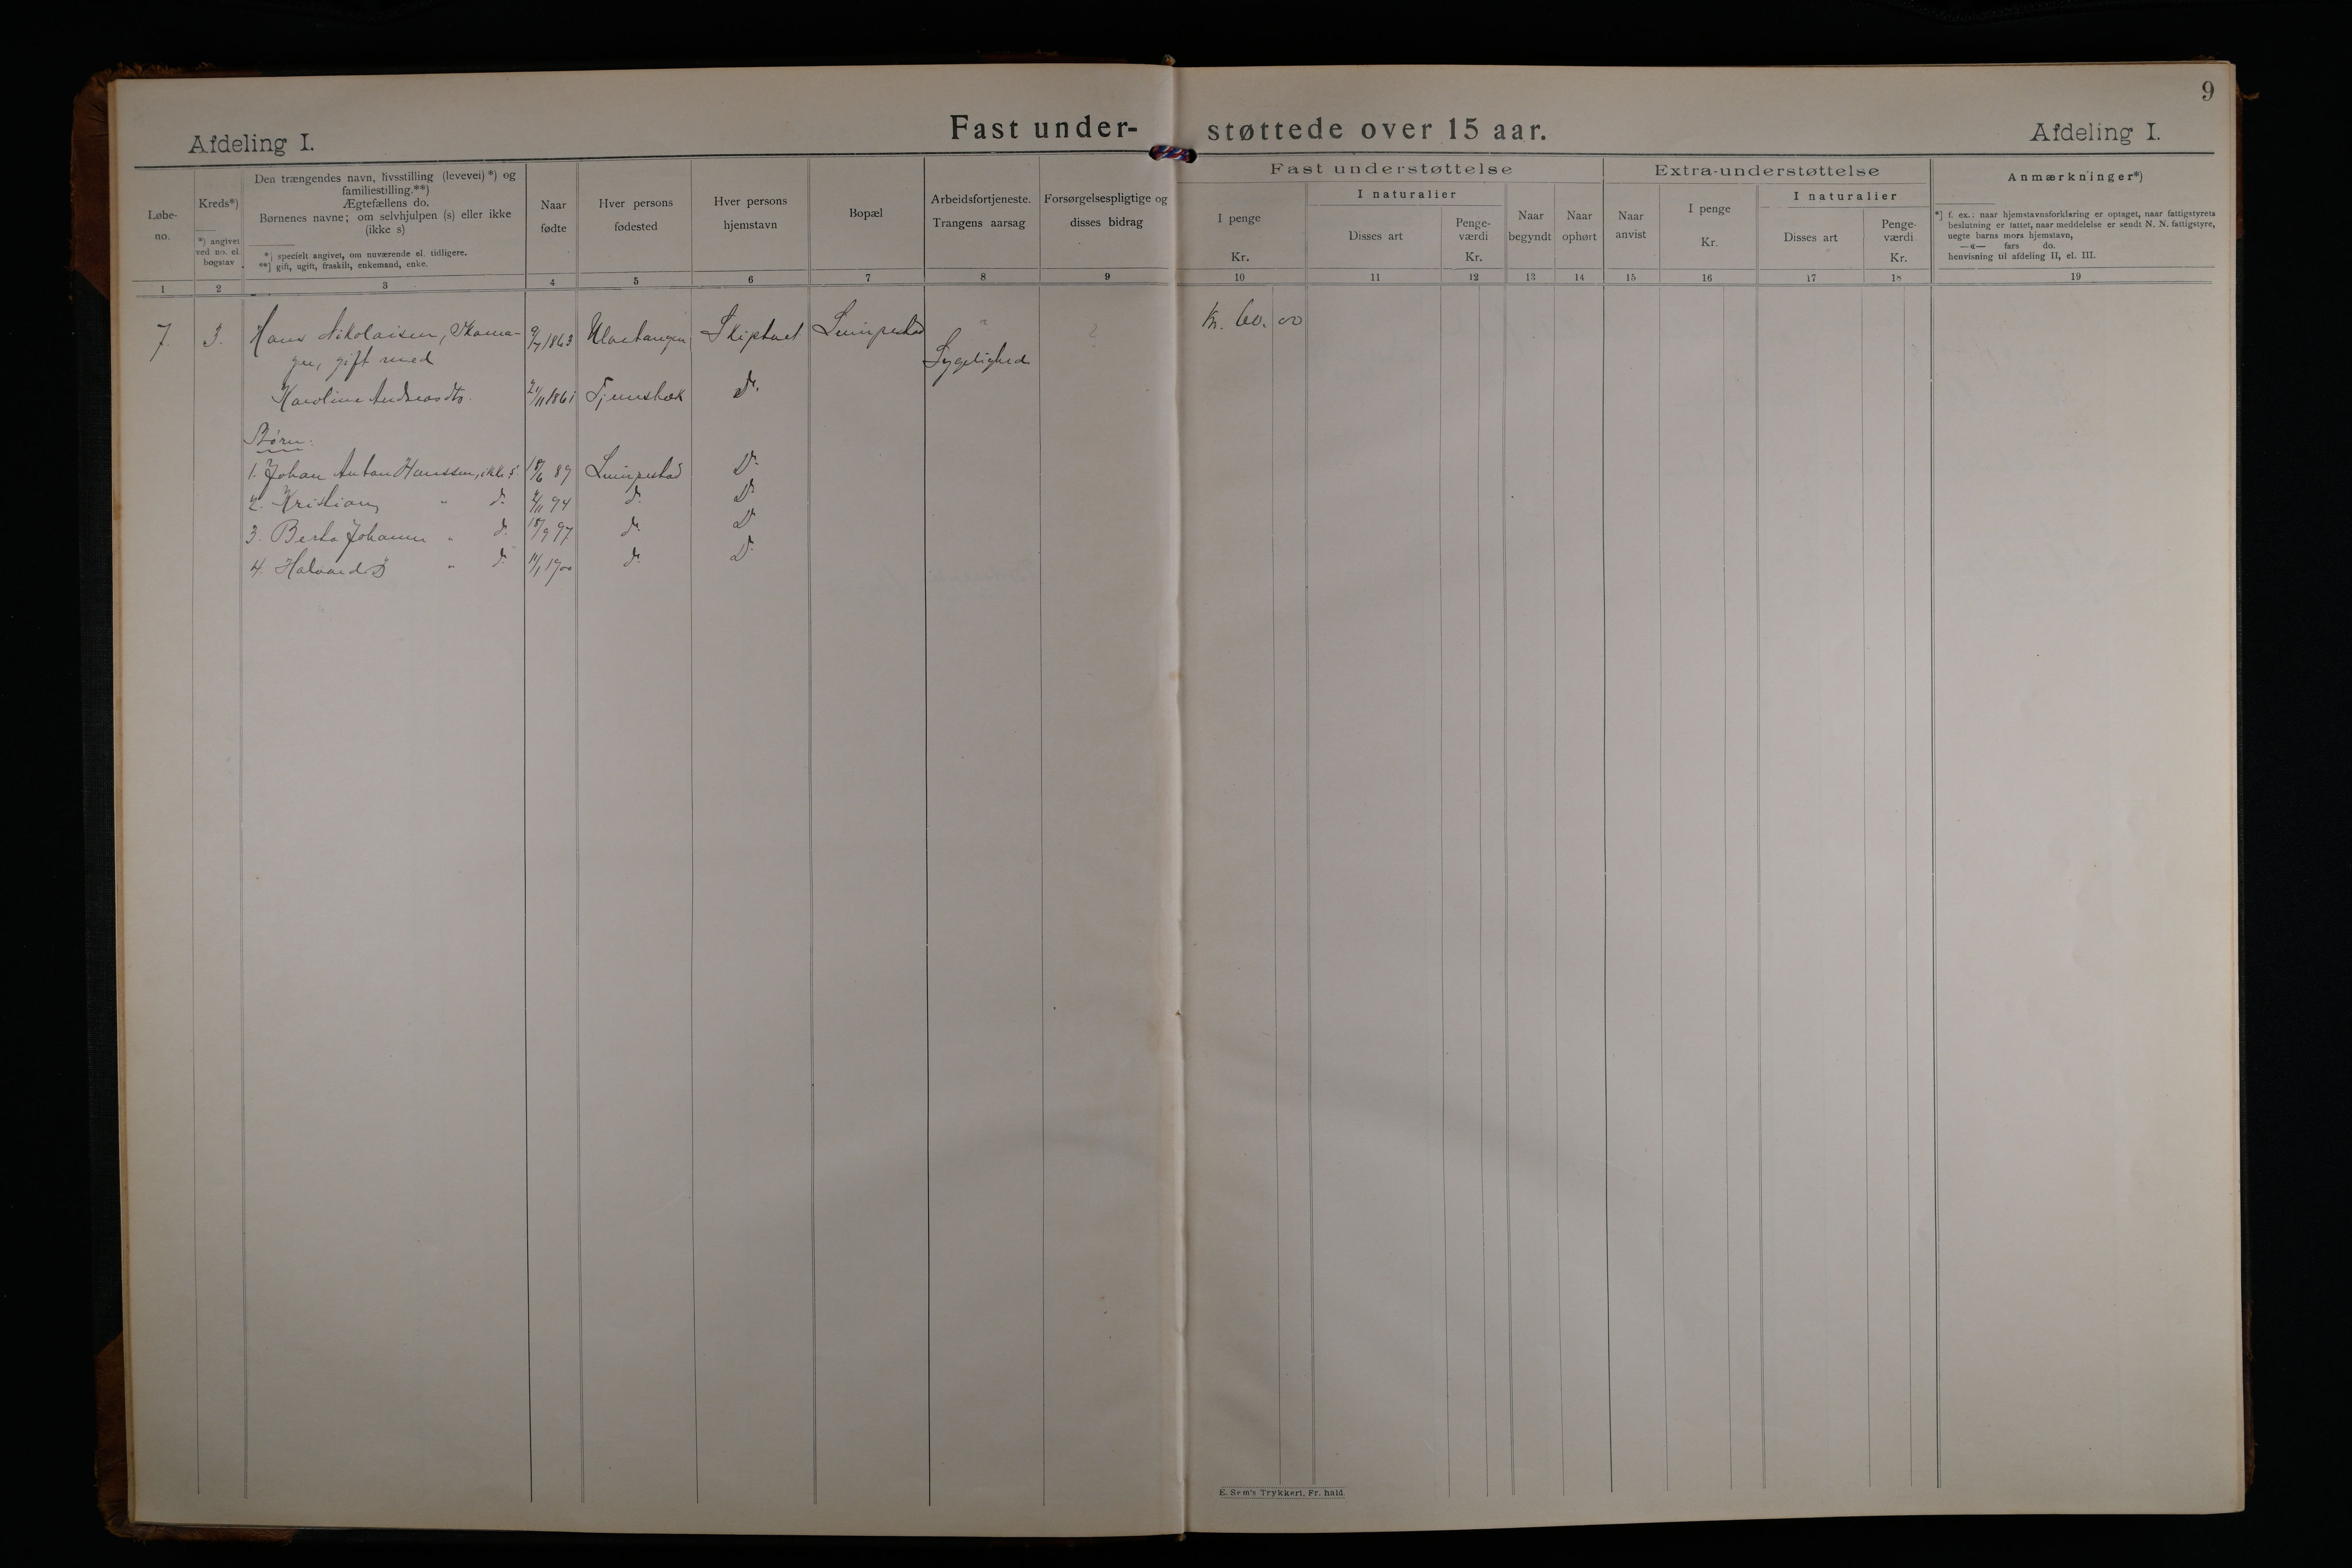 9
Afdeling I.
Fast under- støttede over 15 aar.
Afdeling I.
Løbe-
no.
Kreds*)
*) angivet
ved no. el.
bogstav
Den trængendes navn, livsstilling (levevei) *) og
familiestilling.**)
Ægtefællens do.
Børnenes navne; om selvhjulpen (s) eller ikke
(ikke s)
*) specielt angivet, om nuværende el. tidligere.
**] gift, ugift, fraskilt, enkemand, enke.
Naar
fødte
Hver persons
fødested
Hver persons
hjemstavn
Bopæl
Arbeidsfortjeneste.
Trangens aarsag
Forsørgelsespligtige og
disses bidrag
Fast understøttelse
I penge
Kr.
I naturalier
Disses art
Penge-
værdi
Kr.
Naar
begyndt
Naar
ophørt
Extra-understøttelse
Naar
anvist
I penge
Kr.
I naturalier
Disses art
Penge-
værdi
Kr.
Anmærkninger*)
*] f. ex.: naar hjemstavnsforklaring er optaget, naar fattigstyrets
beslutning er fattet, naar meddelelse er sendt N. N. fattigstyre,
uegte barns mors hjemstavn,
—«— fars do.
henvisning til afdeling II, el. III.
1 2 3 4 5 6 7 8 9 10 11 12 13 14 15 16 17 18 19
7. 3. Hans Nikolaisen, Skoma- 9/7 1863 Skiptvet Kr. 60. 00
ger, gift med Sygelighed
Karoline Andreasdtr. 2/11 1861 Do.
Børn:
1. Johan Anton Hanssen, ikke s. 18/6 89 Do
2. Kristian " do. 2/11 94 do. Do
3. Berta Johanne " do. 18/9 97 do. Do
4. Halvard " do. 14/1 1900 do. Do
E. Sem's Trykkeri, Fr. hald.